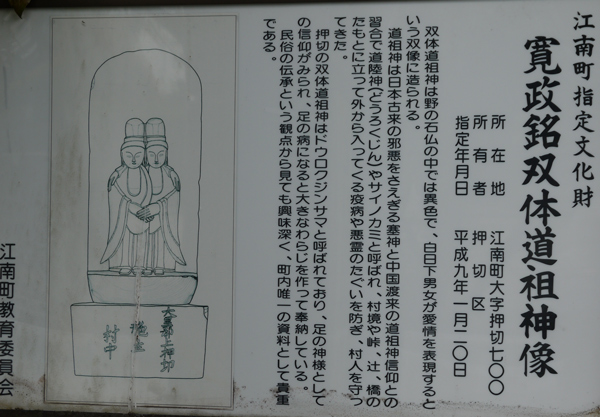 江南町指定文化財
寛政銘双体道祖神像
所在地　江南町大字押切七〇〇
所有者　押切区
指定年月日　平成九年一月二〇日
双体道祖神は野の石仏の中では異色で、白日下男女が愛情を表現すると
いう双像に造られる。
道祖神は日本古来の邪悪をさえぎる塞神と中国渡来の道祖神信仰との
習合で道陸神(どうろくじん)やサイノカミと呼ばれ、村境や峠、辻、橋の
たもとに立って外から入ってくる疫病や悪霊のたぐいを防ぎ、村人を守っ
てきた。
押切の双体道祖神はドウロクジンサマと呼ばれており、足の神様として
の信仰がみられ、足の病になると大きなわらじを作って奉納している。
民俗の伝承という観点から見ても興味深く、町内唯一の資料として貴重
である。
村中
江南町教育委員会